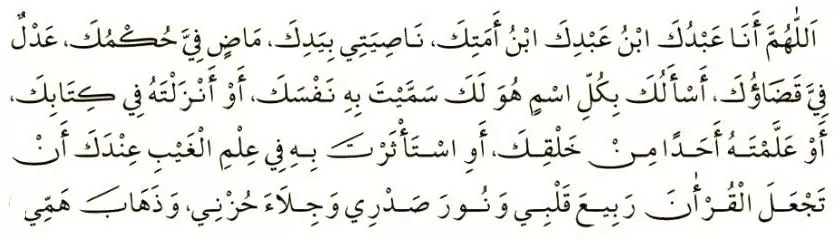 اَللّٰهُمَّ أَنَا عَبْدُكَ ابْنُ عَبْدِكَ ابْنُ أَمَتِكَ، نَاصِيَتِي بِيَدِكَ، مَاضٍ فِيَّ حُكْمُكَ، عَدْلٌ
فِيَّ قَضَاؤُكَ، أَسْأَلُكَ بِكُلِّ اسْمٍ هُوَ لَكَ سَمَّيْتَ بِهِ نَفْسَكَ، أَوْ أَنْزَلْتَهُ فِي كِتَابِكَ،
أَوْ عَلَّمْتَهُ أَحَدًا مِنْ خَلْقِكَ، أَوِ اسْتَأْثَرْتَ بِهِ فِي عِلْمِ الْغَيْبِ عِنْدَكَ أَنْ
تَجْعَلَ الْقُرْأٰنَ رَبِيعَ قَلْبِي وَنُورَ صَدْرِي وَجِلَاءَ حُزْنِي، وَذَهَابَ هَمِّي